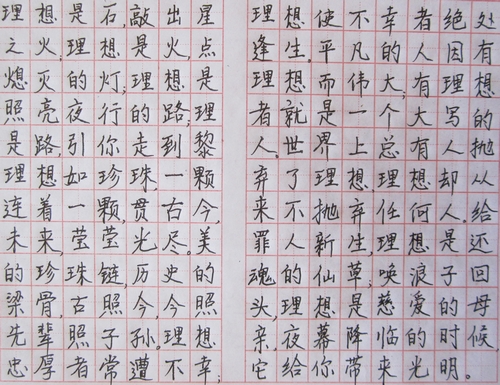 理想是石,敲出星
之火,理想是火,点
熄灭的灯;理想是
照亮夜行的路;理
是路,引你走到黎
理想如珍珠,一颗
连着一颗,贯古今,
未来,莹莹光尽。美
的珍珠链,历史的
梁骨,古照今,今照
先辈照子孙。理想
忠厚者常遭不幸;
理想使不幸者绝处
逢生。平凡的人因有
理想而伟大;有理想
者就是一个大写的
人。世界上总有人抛
弃了理想,理想却从
来不抛弃任何人。给
罪人新生,理想是还
魂的仙草;唤浪子回
头,理想是慈爱的母
亲,夜幕降临的时候,
它给你带来光明。